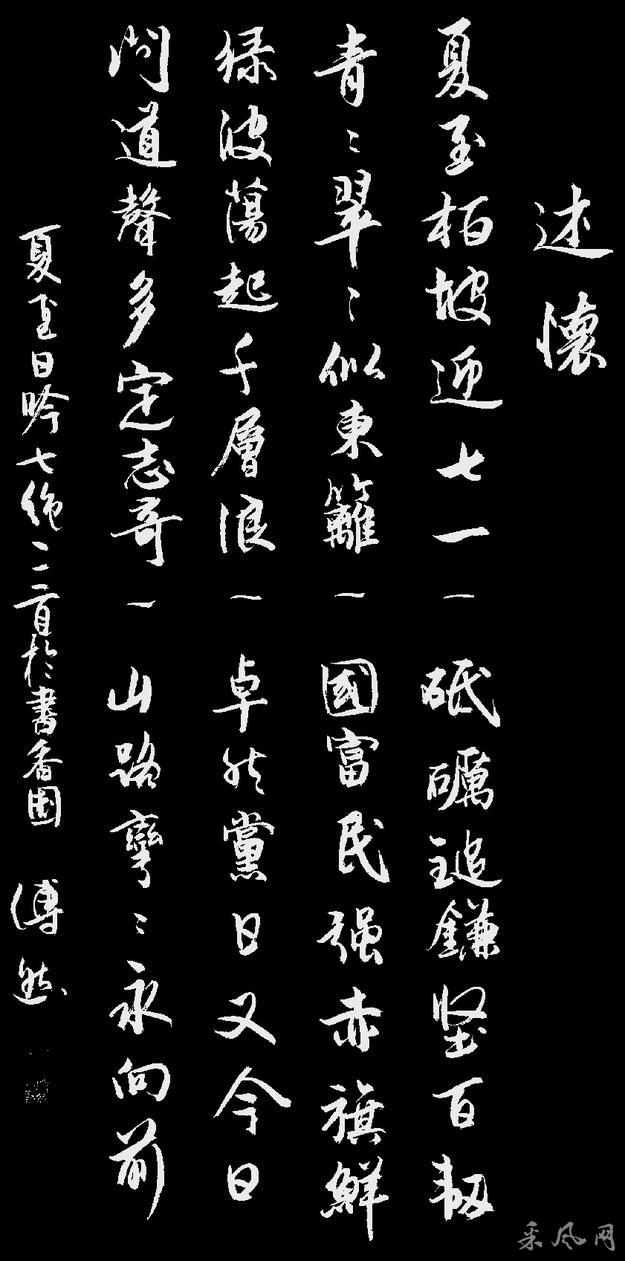 述懷
夏至柏坡迎七一一砥礪鎚鎌堅百韧
青〻翠〻似東籬一國富民强赤旗鮮
綠波蕩起千層浪一卓然黨日又今日
問道聲多定志哥一山路彎〻永向前
夏至日吟七絶一二首於書香園 傅然
采风网